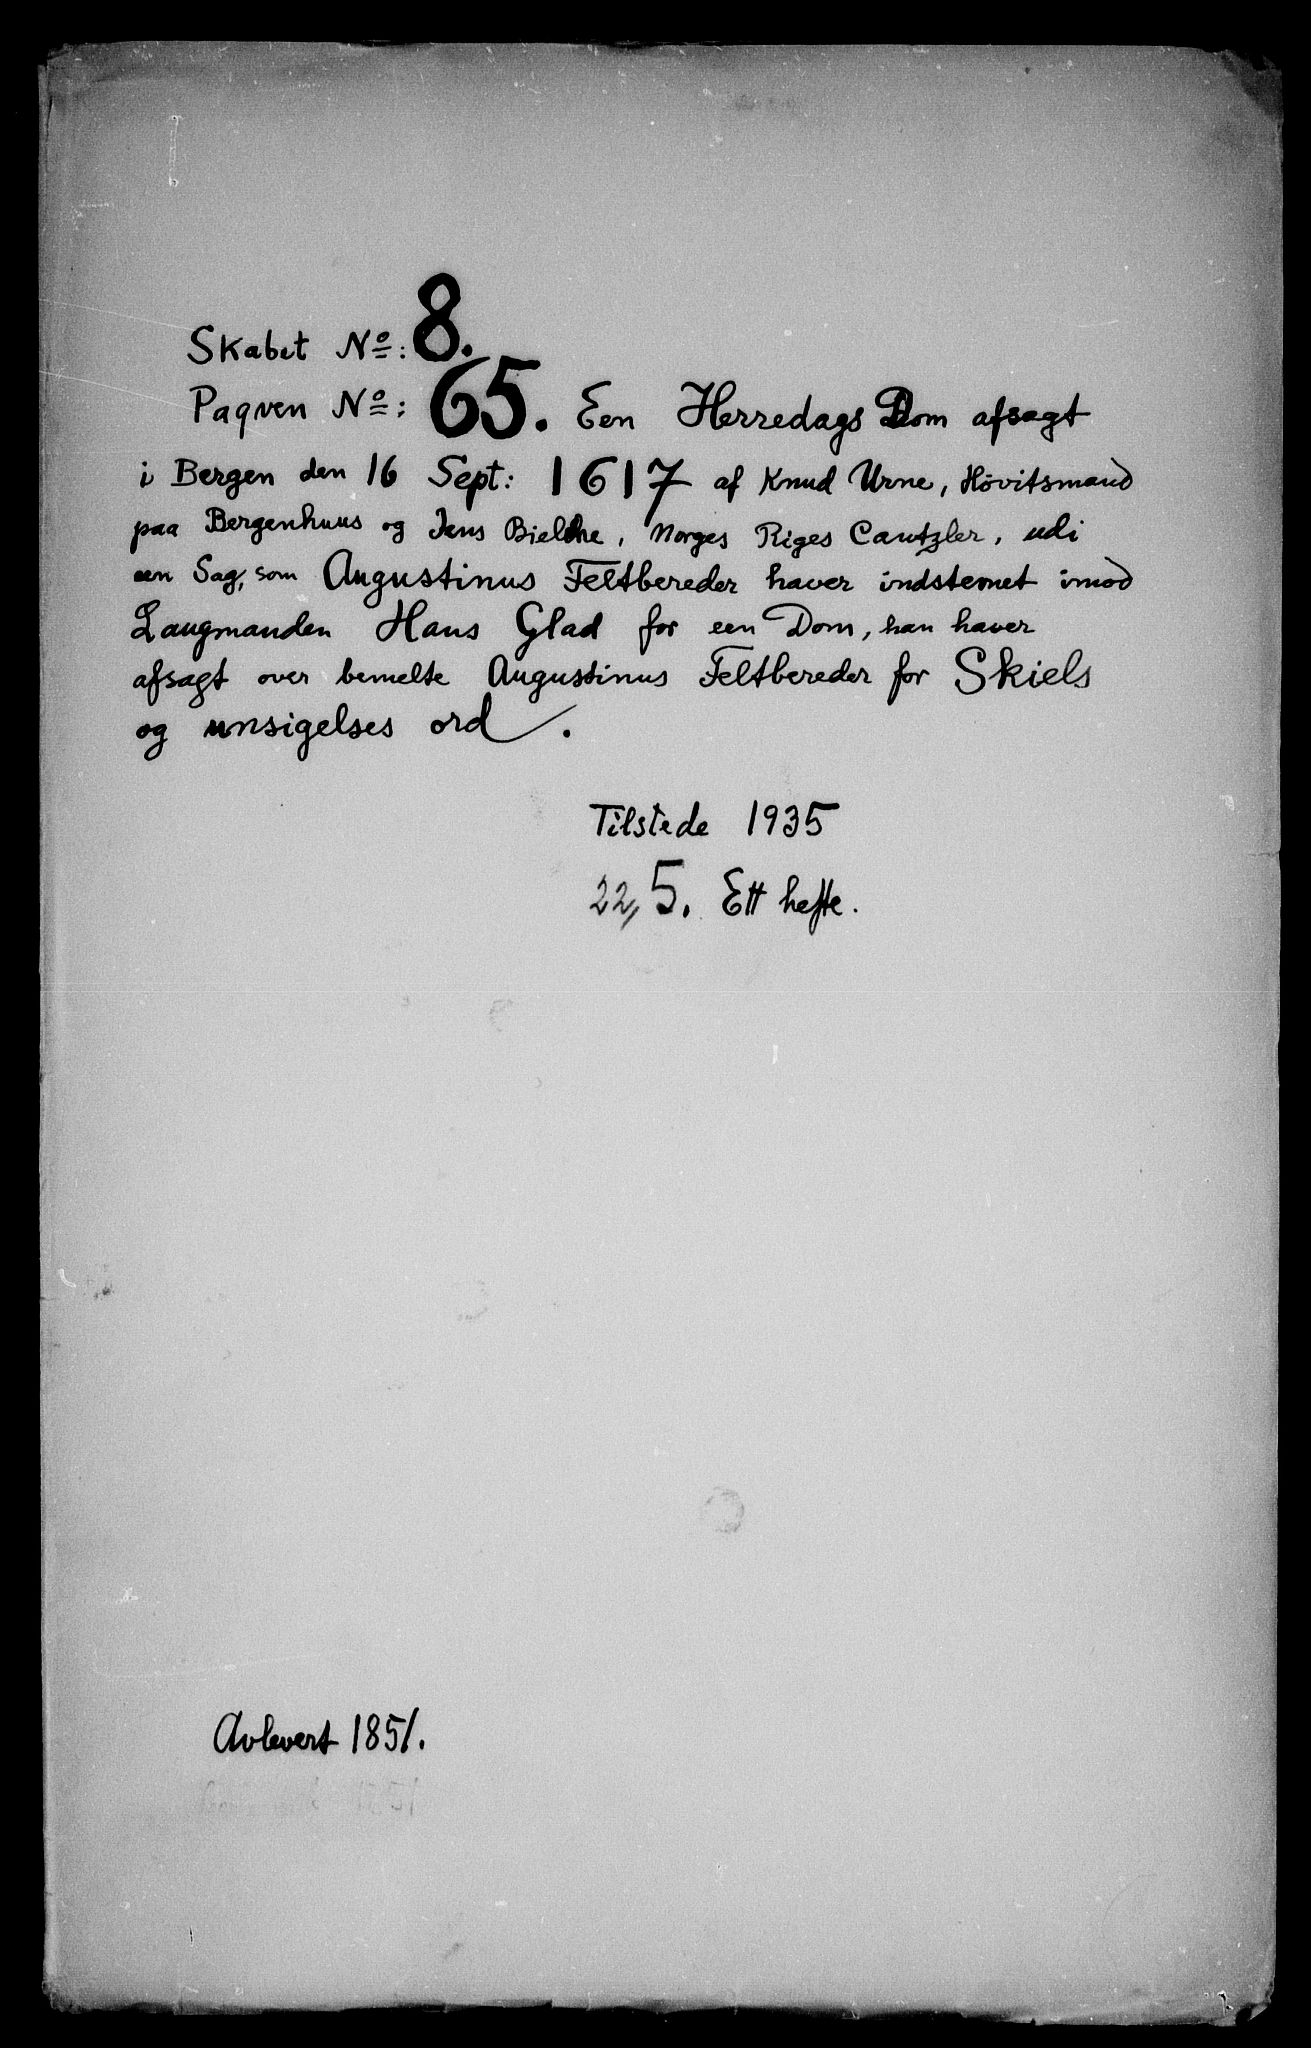 Skabet No: 8.
Paqven No: 65. Een Herredags Dom afsagt
i Bergen den 16 Sept: 1617 af Knud Urne, Hövitsmand
paa Bergenhuus og Jens Bielche, Norges Riges Cantzler, udi
een Sag, som Augustinus Feltbereder haver indstemet imod
Laugmanden Hans Glad for een Dom, han haver
afsagt over bemelte Augustinus Feltbereder for Skiels
og unsigelses ord.
Tilstede 1935
22, 5. Ett hefte.
Avlevert 1851.